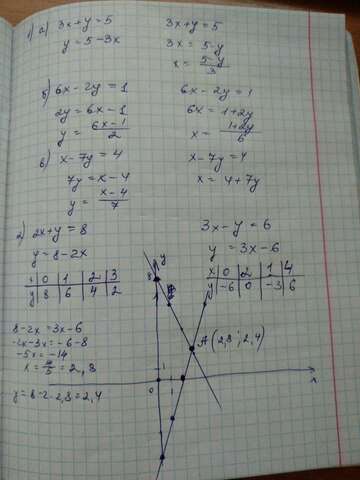 1) а) 3x+y=5   3x+y=5
y=5-3x   3x=5-y
x=5-y/3
б) 6x-2y=1   6x-2y=1
2y=6x-1   6x=1+2y
y=6x-1/2   x=1+2y/6
в) x-7y=4   x-7y=4
7y=x-4   x=4+7y
y=x-4/7
2) 2x+y=8   3x-y=6
y=8-2x   y=3x-6
x 0 1 2 3   x 0 2 1 4
y 8 6 4 2   y -6 0 -3 6
8-2x=3x-6   y
-2x-3x=-6-8   8
-5x=-14   A(2,8; 2,4)
x=14/5=2,8
1
0 1 x
y=8-2·2,8=2,4